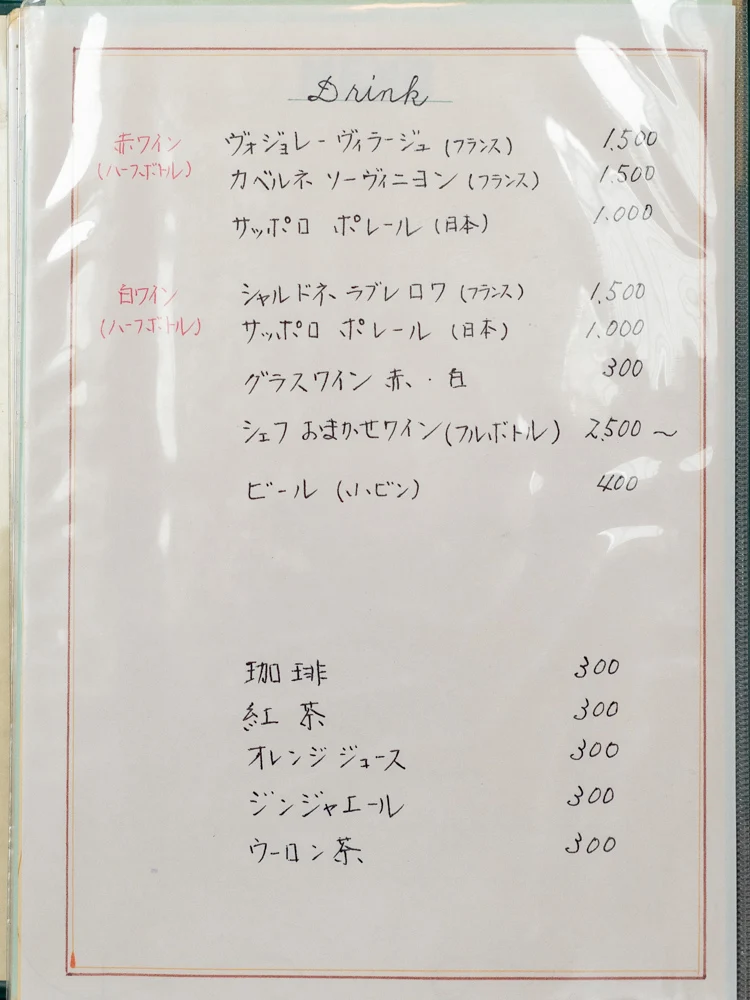 Drink
赤ワイン ヴォジョレーヴィラージュ(フランス) 1.500
(ハーフボトル) カベルネ ソーヴィニヨン(フランス) 1.500
サッポロ ポレール(日本) 1.000
白ワイン シャルドネ、ラブレロワ(フランス) 1.500
(ハーフボトル) サッポロ ポレール(日本) 1.000
グラスワイン 赤、・白 300
シェフおまかせワイン(フルボトル) 2,500〜
ビール(小ビン) 400
珈琲 300
紅茶 300
オレンジジュース 300
ジンジャエール 300
ウーロン茶 300